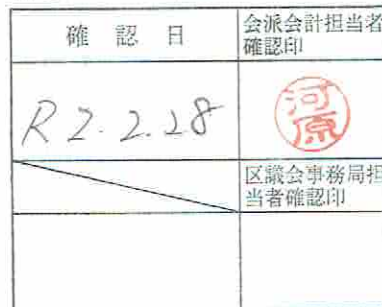 確認日
会派会計担当者
確認印
R2.2.28
河原
区議会事務局担
当者確認印